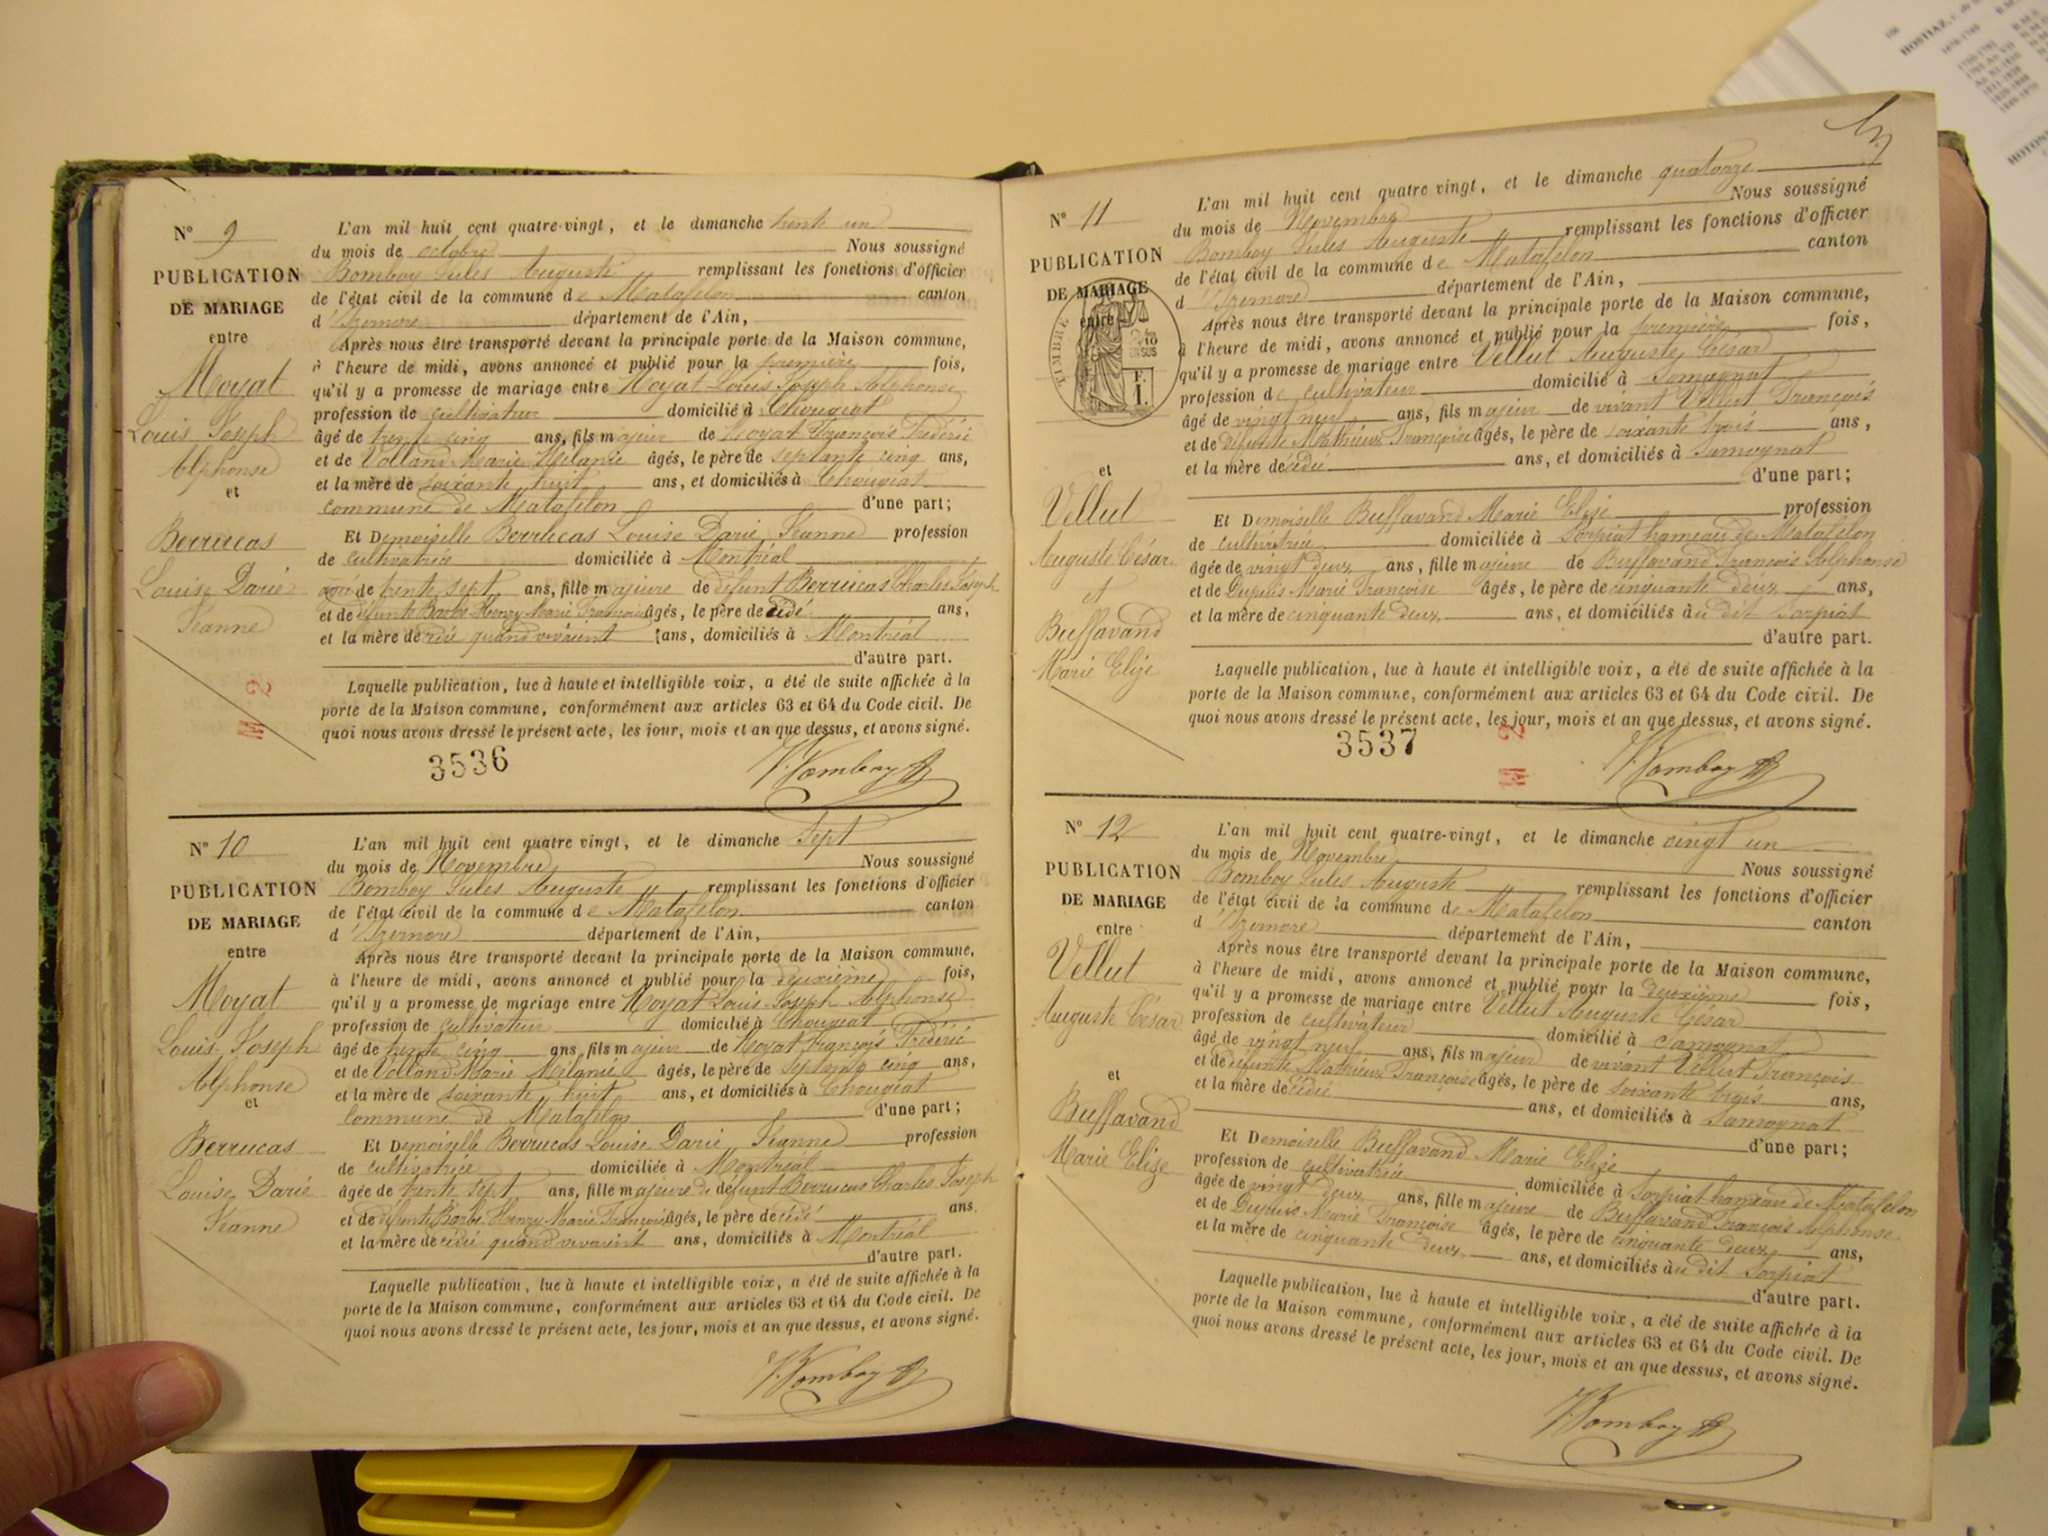 N° 9
PUBLICATION
DE MARIAGE
entre
Moyat
Louis Joseph
Alphonse
et
Berrucas
Louise Darie
Jeanne
L'an mil huit cent quatre-vingt, et le dimanche trente un
du mois de octobre Nous soussigné
Bomboy Jules Auguste remplissant les fonctions d'officier
de l'état civil de la commune de Matafelon canton
d'Izernore département de l'Ain,
Après nous être transporté devant la principale porte de la Maison commune,
à l'heure de midi, avons annoncé et publié pour la première fois,
qu'il y a promesse de mariage entre Moyat Louis Joseph Alphonse
profession de cultivateur domicilié à Chougeat
âgé de trente cinq ans, fils majeur de Moyat François Frédéric
et de Volland Marie Mélanie âgés, le père de septante cinq ans,
et la mère de soixante huit ans, et domiciliés à Chougeat
commune de Matafelon d'une part;
Et Demoiselle Berrucas Louise Darie Jeanne profession
de cultivatrice domiciliée à Montréal
âgée de trente sept ans, fille majeure de défunt Berrucas Charles Joseph
et de défunte Barbe Henry Marie Françoise âgés, le père de cédé ans,
et la mère de cédée quand vivaient ans, domiciliés à Montréal
d'autre part.
Laquelle publication, lue à haute et intelligible voix, a été de suite affichée à la
porte de la Maison commune, conformément aux articles 63 et 64 du Code civil. De
quoi nous avons dressé le présent acte, les jour, mois et an que dessus, et avons signé.
3536
J. Bomboy
N° 10
PUBLICATION
DE MARIAGE
entre
Moyat
Louis Joseph
Alphonse
et
Berrucas
Louise Darie
Jeanne
L'an mil huit cent quatre vingt, et le dimanche sept
du mois de Novembre Nous soussigné
Bomboy Jules Auguste remplissant les fonctions d'officier
de l'état civil de la commune de Matafelon canton
d'Izernore département de l'Ain,
Après nous être transporté devant la principale porte de la Maison commune,
à l'heure de midi, avons annoncé et publié pour la deuxième fois,
qu'il y a promesse de mariage entre Moyat Louis Joseph Alphonse
profession de cultivateur domicilié à Chougeat
âgé de trente cinq ans, fils majeur de Moyat François Frédéric
et de Volland Marie Mélanie âgés, le père de septante cinq ans,
et la mère de soixante huit ans, et domiciliés à Chougeat
commune de Matafelon d'une part;
Et Demoiselle Berrucas Louise Darie Jeanne profession
de cultivatrice domiciliée à Montréal
âgée de trente sept ans, fille majeure de défunt Berrucas Charles Joseph
et de défunte Barbe Henry Marie Françoise âgés, le père de cédé ans
et la mère de cédée quand vivaient ans, domiciliés à Montréal
d'autre part.
Laquelle publication, lue à haute et intelligible voix, a été de suite affichée à la
porte de la Maison commune, conformément aux articles 63 et 64 du Code civil. De
quoi nous avons dressé le présent acte, les jour, mois et an que dessus, et avons signé.
J. Bomboy
N° 11
PUBLICATION
DE MARIAGE
entre
TIMBRE
et
Vellut
Auguste César
et
Buffavand
Marie Elize
L'an mil huit cent quatre vingt, et le dimanche quatorze
du mois de Novembre Nous soussigné
Bomboy Jules Auguste remplissant les fonctions d'officier
de l'état civil de la commune de Matafelon canton
d'Izernore département de l'Ain,
Après nous être transporté devant la principale porte de la Maison commune,
à l'heure de midi, avons annoncé et publié pour la première fois,
qu'il y a promesse de mariage entre Vellut Auguste César
profession de cultivateur domicilié à Samognat
âgé de vingt neuf ans, fils majeur de vivant Vellut François
et de défunte Mathieux Françoise âgés, le père de soixante trois ans,
et la mère décédée ans, et domiciliés à Samognat
d'une part;
Et Demoiselle Buffavand Marie Elize profession
de cultivatrice domiciliée à Sorpiat hameau de Matafelon
âgée de vingt deux ans, fille majeure de Buffavand François Alphonse
et de Dupuis Marie Françoise âgés, le père de cinquante deux ans,
et la mère de cinquante deux ans, et domiciliés au dit Sorpiat
d'autre part.
Laquelle publication, lue à haute et intelligible voix, a été de suite affichée à la
porte de la Maison commune, conformément aux articles 63 et 64 du Code civil. De
quoi nous avons dressé le présent acte, les jour, mois et an que dessus, et avons signé.
3537
J. Bomboy
N° 12
PUBLICATION
DE MARIAGE
entre
Vellut
Auguste César
et
Buffavand
Marie Elize
L'an mil huit cent quatre-vingt, et le dimanche vingt un
du mois de Novembre Nous soussigné
Bomboy Jules Auguste remplissant les fonctions d'officier
de l'état civil de la commune de Matafelon canton
d'Izernore département de l'Ain,
Après nous être transporté devant la principale porte de la Maison commune,
à l'heure de midi, avons annoncé et publié pour la deuxième fois,
qu'il y a promesse de mariage entre Vellut Auguste César
profession de cultivateur domicilié à Samognat
âgé de vingt neuf ans, fils majeur de vivant Vellut François
et de défunte Mathieux Françoise âgés, le père de soixante trois ans,
et la mère décédée ans, et domiciliés à Samognat
d'une part;
Et Demoiselle Buffavand Marie Elize
profession de cultivatrice domiciliée à Sorpiat hameau de Matafelon
âgée de vingt deux ans, fille majeure de Buffavand François Alphonse
et de Dupuis Marie Françoise âgés, le père de cinquante deux ans,
et la mère de cinquante deux ans, et domiciliés au dit Sorpiat
d'autre part.
Laquelle publication, lue à haute et intelligible voix, a été de suite affichée à la
porte de la Maison commune, conformément aux articles 63 et 64 du Code civil. De
quoi nous avons dressé le présent acte, les jour, mois et an que dessus, et avons signé.
J. Bomboy